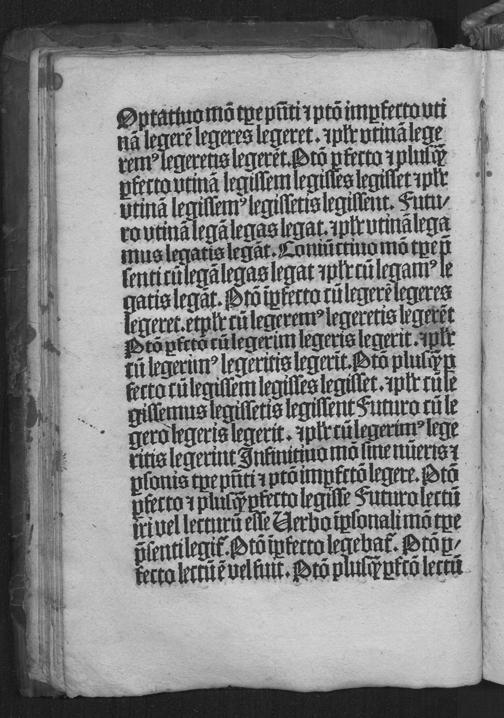 Optatiuo mō tꝑe pn̄ti ⁊ ptō imꝑfecto vti
nā legerē legeres legeret . ⁊ plr̄ vtinā lege
remꝰ legeretis legerēt. Ptō ꝑfecto ⁊ plusqȝ
ꝑfecto vtinā legissem legisses legisset ⁊ plr̄
vtinā legissemꝰ legissetis legissent. Futu⸗
ro vtinā legā legas legat. ⁊ plr̄ vtinā lega
mus legatis legāt. Coniūctiuo mō tꝑe p̄
senti cū legā legas legat ⁊ plr̄ cū legamꝰ le
gatis legāt. Ptō īꝑfecto cū legerē legeres
legeret. et plr̄ cū legeremꝰ legeretis legerēt
Ptō ꝑfctō cū legerim legeris legerit. ⁊ plr̄
cū legerimꝰ legeritis legerīt. Ptō plusqȝ ꝑ
fecto cū legissem legisses legisset. ⁊ plr̄ cū le
gissemus legissetis legissent Futuro cū le
gero legeris legerit. ⁊ plr̄ cū legerimꝰ lege
ritis legerint Infinitiuo mō sine nūeris ⁊
ꝑsonis tꝑe pn̄ti ⁊ ptō imꝑfctō legere. Ptō
ꝑfecto ⁊ plusqȝ ꝑfecto legisse Futuro lectū
iri vel lecturū esse Uerbo īꝑsonali mō tꝑe
p̄senti legit̄. Ptō īꝑfecto legebat̄. Ptō ꝑ⸗
fecto lectū ē vel fuit. Ptō plusqȝ ꝑfctō lectū